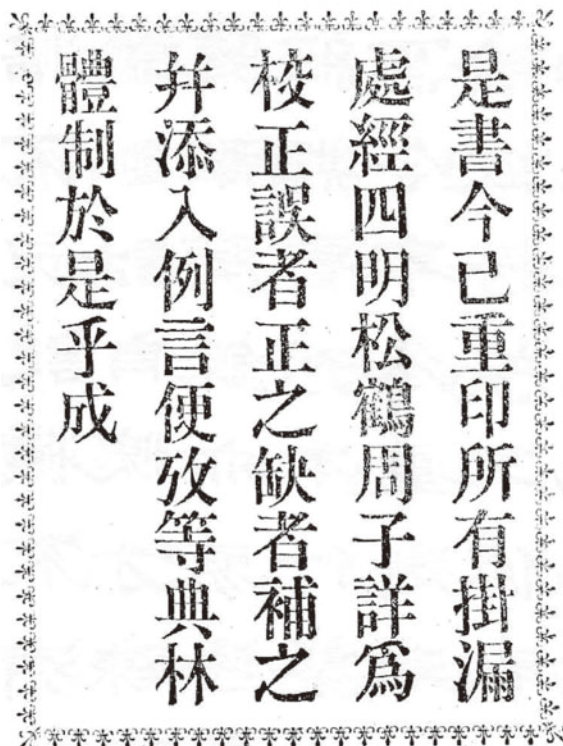 是書今已重印所有掛漏
處經四明松鶴周子詳爲
校正誤者正之缺者補之
幷添入例言便攷等典林
體制於是乎成